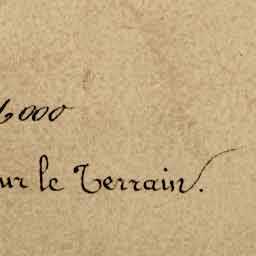 000
ur le Terrain.